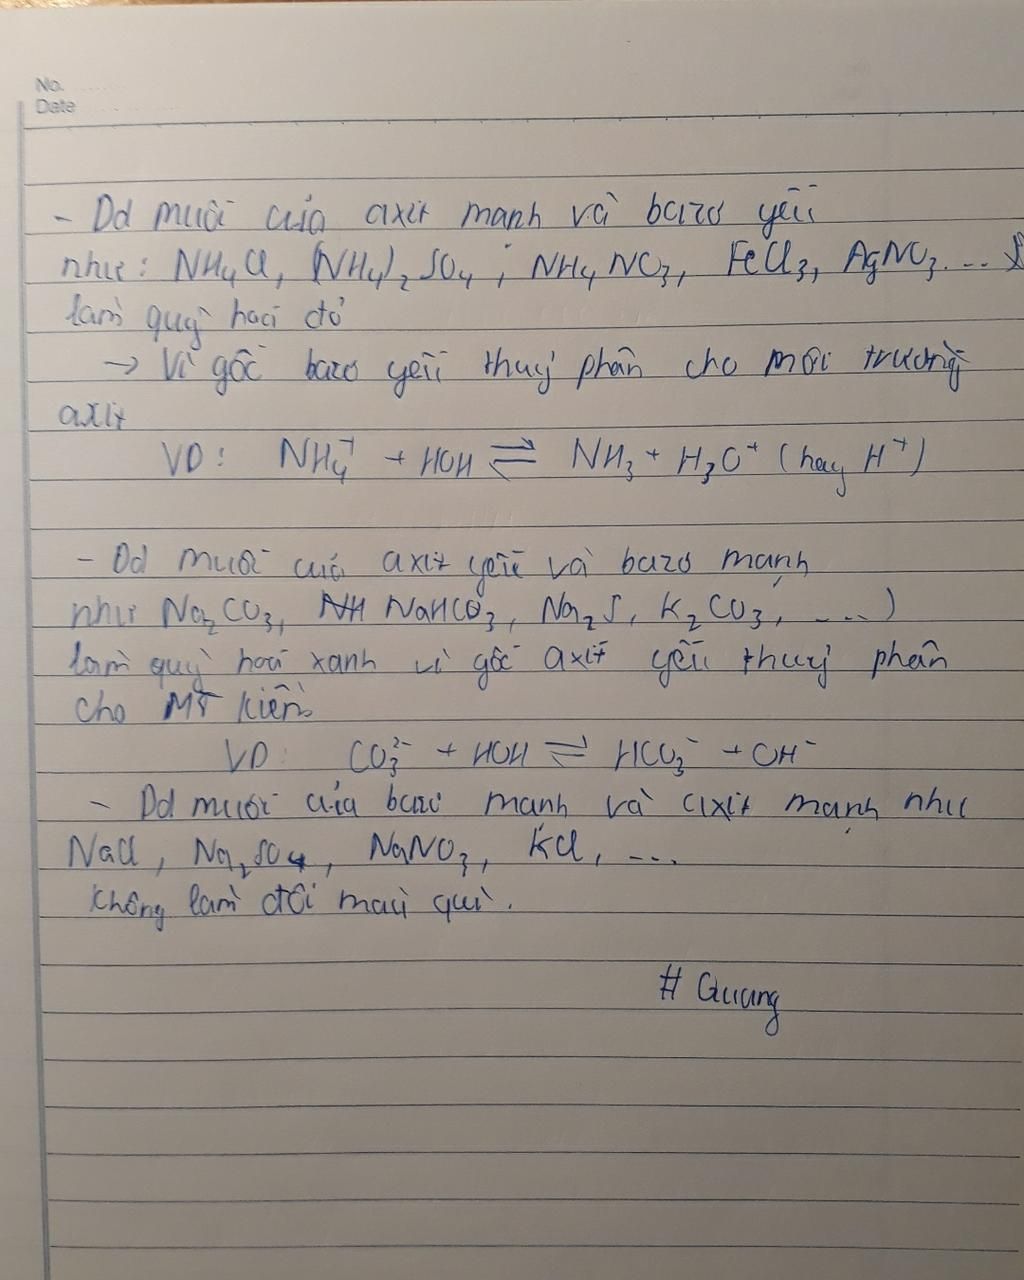 No.
Date
- Dd muối của axit mạnh và bazơ yếu
như: NH₄Cl, (NH₄)₂SO₄, NH₄NO₃, FeCl₃, AgNO₃...
làm quỳ hoá đỏ
→ Vì gốc bazơ yếu thuỷ phân cho môi trường
axit
VD: NH₄⁺ + HOH ⇌ NH₃ + H₃O⁺ (hay H⁺)
- Dd muối của axit yếu và bazơ mạnh
như Na₂CO₃, NaHCO₃, Na₂S, K₂CO₃, ....)
làm quỳ hoá xanh vì gốc axit yếu thuỷ phân
cho MT kiềm
VD: CO₃²⁻ + HOH ⇌ HCO₃⁻ + OH⁻
- Dd muối của bazơ mạnh và axit mạnh như
NaCl, Na₂SO₄, NaNO₃, KCl, ...
không làm đổi màu quì.
# Quang